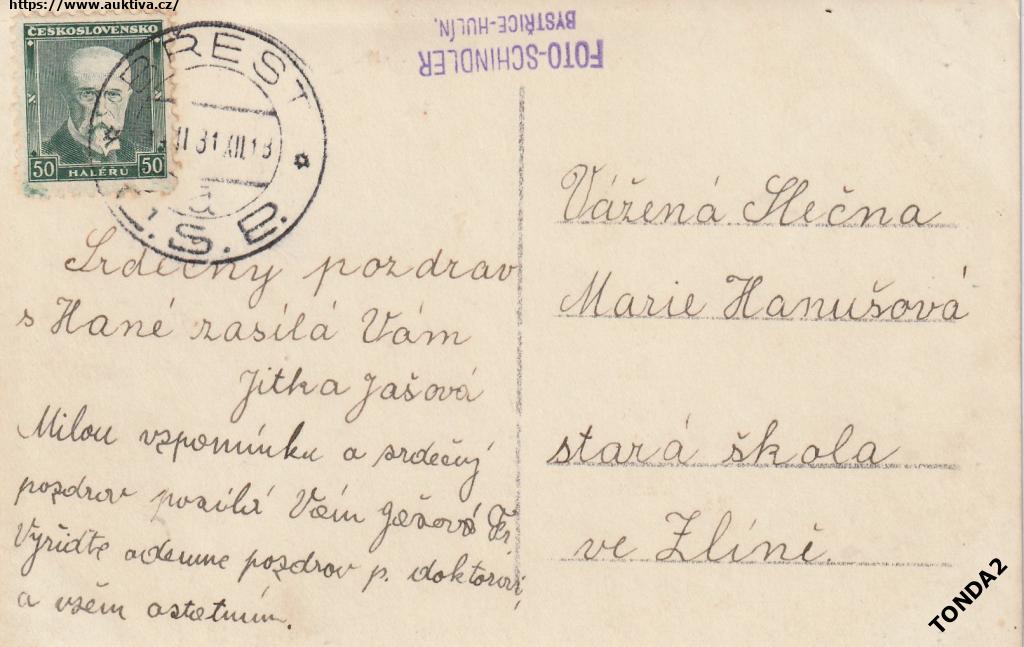 https://www.auktiva.cz/
ČESKOSLOVENSKO
50 HALÉŘŮ 50
BŘEST
31 XII 18
Č.S.D.
FOTO-SCHINDLER
BYSTŘICE-HULÍN.
Srdečný pozdrav
s Hané zasílá Vám
Jitka Jašová
Milou vzpomínku a srdečný
pozdrav posílá Vám Jašová
Vyřiďte odemne pozdrav p. doktorovi
a všem ostatním.
Vážená Slečna
Marie Hanušová
stará škola
ve Zlíně.
TONDA2